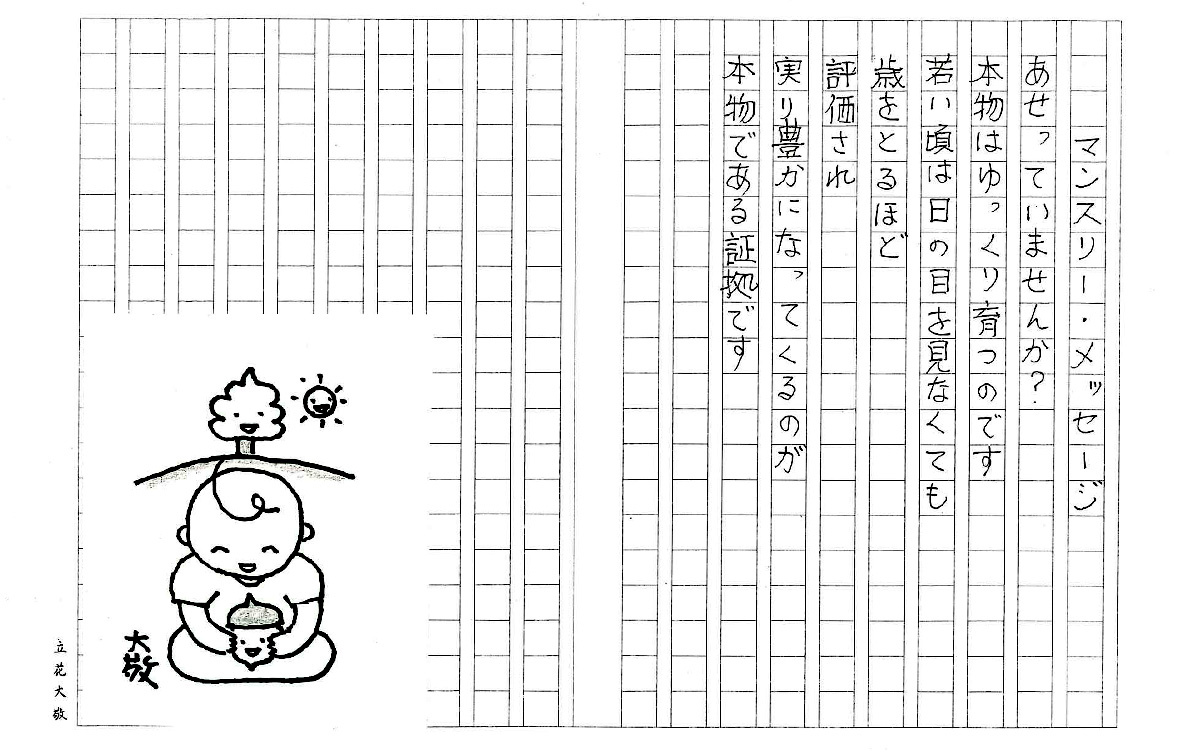 マンスリー・メッセージ
あせっていませんか?
本物はゆっくり育つのです
若い頃は日の目を見なくても
歳をとるほど
評価され
実り豊かになってくるのが
本物である証拠です
大敬
立花大敬